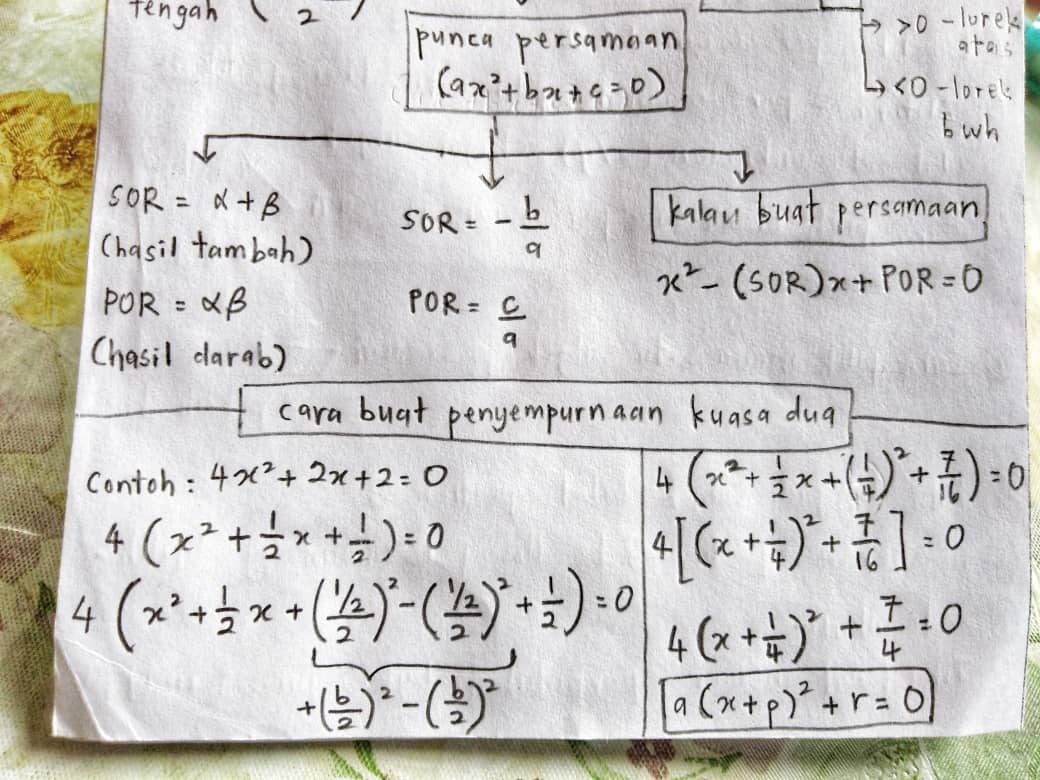 Tengah ( 2 )
punca persamaan
(ax²+bx+c=0)
→ >0 - lorek
atas
→ <0 - lorek
bwh
SOR = α + β
(hasil tambah)
POR = αβ
(hasil darab)
SOR = - b/a
POR = c/a
kalau buat persamaan
x² - (SOR)x + POR = 0
cara buat penyempurnaan kuasa dua
Contoh : 4x² + 2x + 2 = 0
4 (x² + 1/2 x + 1/2) = 0
4 (x² + 1/2 x + (½/2)² - (½/2)² + 1/2) = 0
+(b/2)² - (b/2)²
4 (x² + 1/2 x + (1/4)² + 7/16) = 0
4[(x + 1/4)² + 7/16] = 0
4(x + 1/4)² + 7/4 = 0
a(x+p)² + r = 0